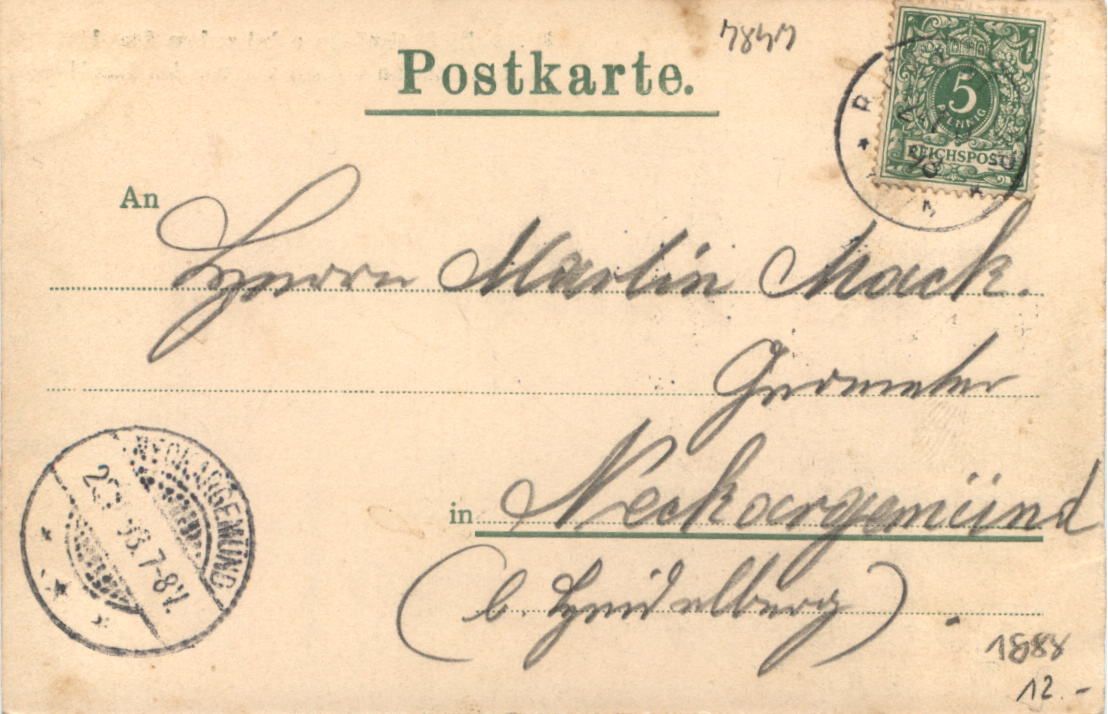 7847
Postkarte.
5
PFENNIG
REICHSPOST
An
Herrn Martin Mack.
Geometer
in Neckargemünd
(b. Heidelberg)
NECKARGEMÜND
7-8V.
1888
12.-